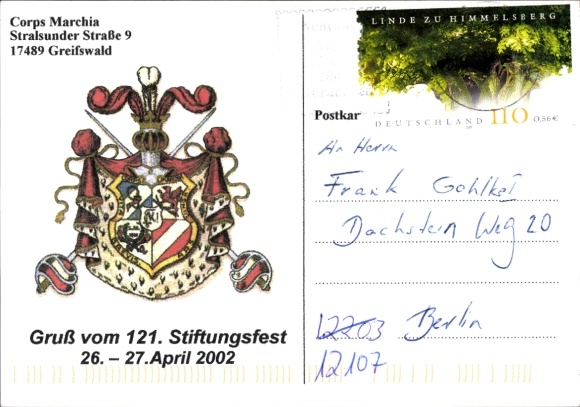 Corps Marchia
Stralsunder Straße 9
17489 Greifswald
Gruß vom 121. Stiftungsfest
26. – 27. April 2002
LINDE ZU HIMMELSBERG
DEUTSCHLAND 110 0,56€
Postkar
An Herrn
Frank
Dachstein Weg 20
12203 Berlin
12107